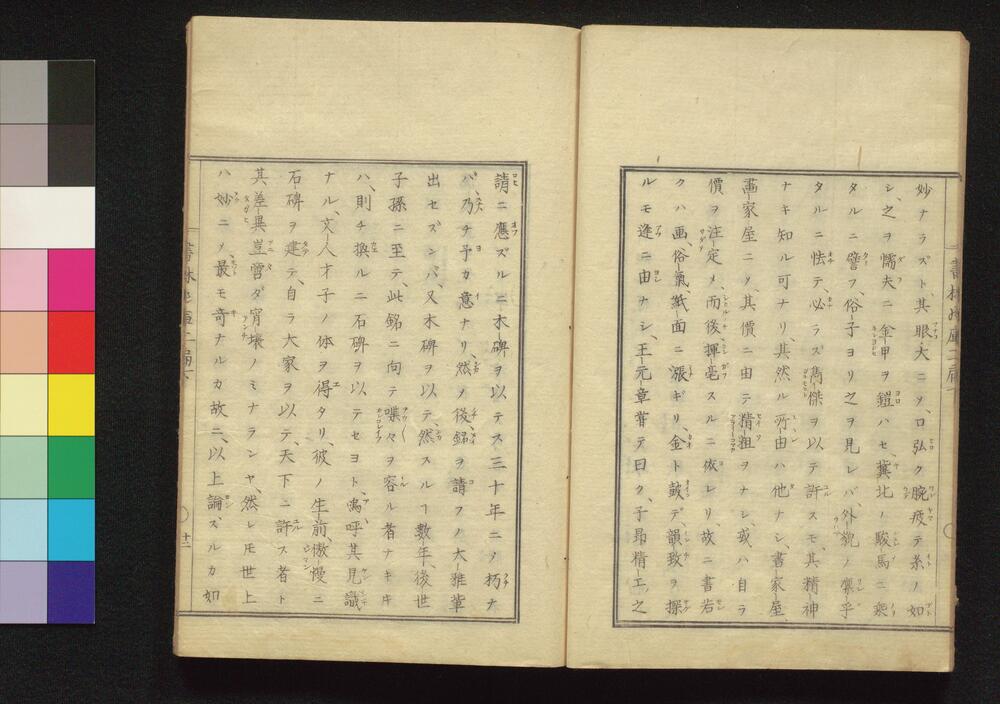 妙ナラズト、其眼大ニメ、口弘ク腕疲テ糸ノ如
シ、之ヲ懦夫ニ金甲ヲ鎧ハセ、冀北ノ駿馬ニ乘
タルニ譬フ、俗子ヨリ之ヲ見レバ、外貌ノ凛乎
タルニ怯テ、必ラズ雋傑ヲ以テ許スモ、其精神
ナキ知ル可ナリ、其然ル所由ハ他ナシ、書家屋
畫家屋ニメ、其價ニ由テ精粗ヲナシ、或ハ自ラ
價ヲ注定メ、而後揮毫スルニ依レリ故ニ書岩
クハ画、俗氣紙面ニ漲ギリ、金ト皷デ、韻致ヲ探
ルモ逢ニ由ナシ、王元章甞テ曰ク、子昂精工之
請ニ應ズルニ木碑ヲ以テス三十年ニメ朽ナ
バ、乃チ予カ意ナリ、然ノ後、銘ヲ請フノ大雅輩
出セズンバ、又木碑ヲ以テ、然スルヿ數年、後世
子孫ニ至テ、此銘ニ向テ喋々ヲ容ル者ナキキ
ハ、則チ換ルニ石碑ヲ以テセヨト、嗚呼其見識
ナル、文人才子ノ体ヲ得タリ、彼ノ生前、傲慢ニ
石碑ヲ建テ、自ラ大家ヲ以テ、天下ニ許ス者ト
其差異豈雲ダ宵壌ノミナランヤ、然レ𪜈世上
ハ妙ニメ最モ奇ナルカ故ニ、以上論ズルカ如
十二